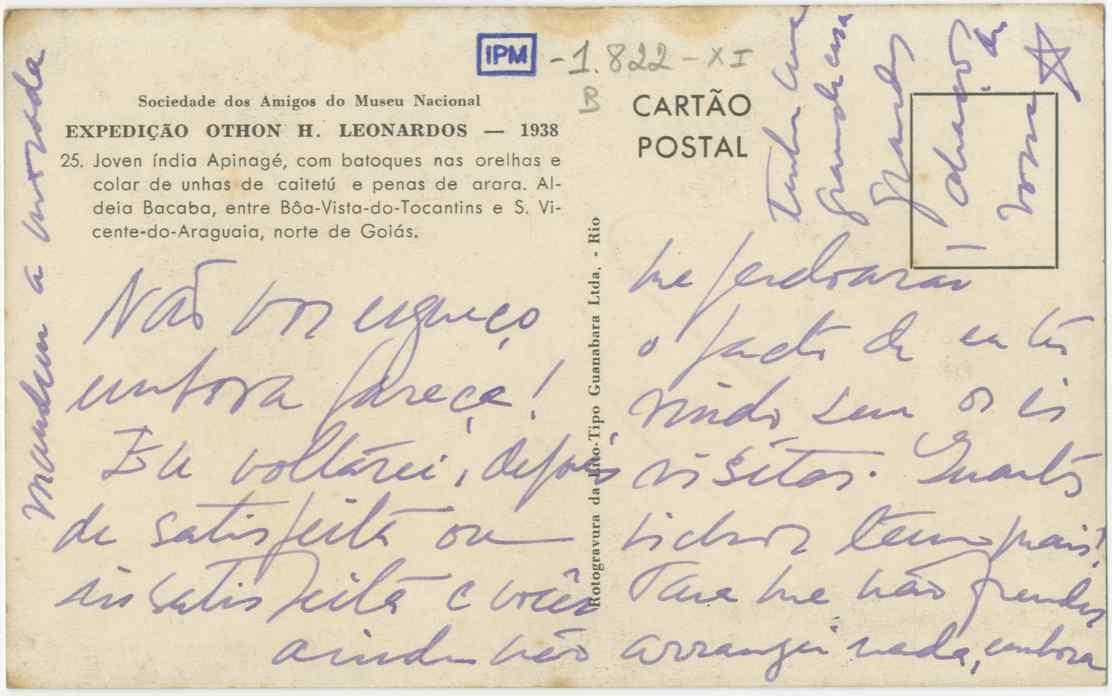 IPM - 1.822 - XI
B
Sociedade dos Amigos do Museu Nacional
EXPEDIÇÃO OTHON H. LEONARDOS — 1938
25. Joven índia Apinagé, com batoques nas orelhas e
colar de unhas de caitetú e penas de arara. Al-
deia Bacaba, entre Bôa-Vista-do-Tocantins e S. Vi-
cente-do-Araguaia, norte de Goiás.
CARTÃO
POSTAL
Rotogravura da Lito-Tipo Guanabara Ltda. - Rio
Não vos esqueço
embora pareça!
Eu voltarei, depois
de satisfeita ou
insatisfeita e vocês
me perdoarão
o facto de eu ter
vindo sem os ir
visitar. Quantos
bichos temo pais!
Para me não prender
ainda não arranjei nada, embora
tenha uma
grande casa
grandes
de
mandem a morada